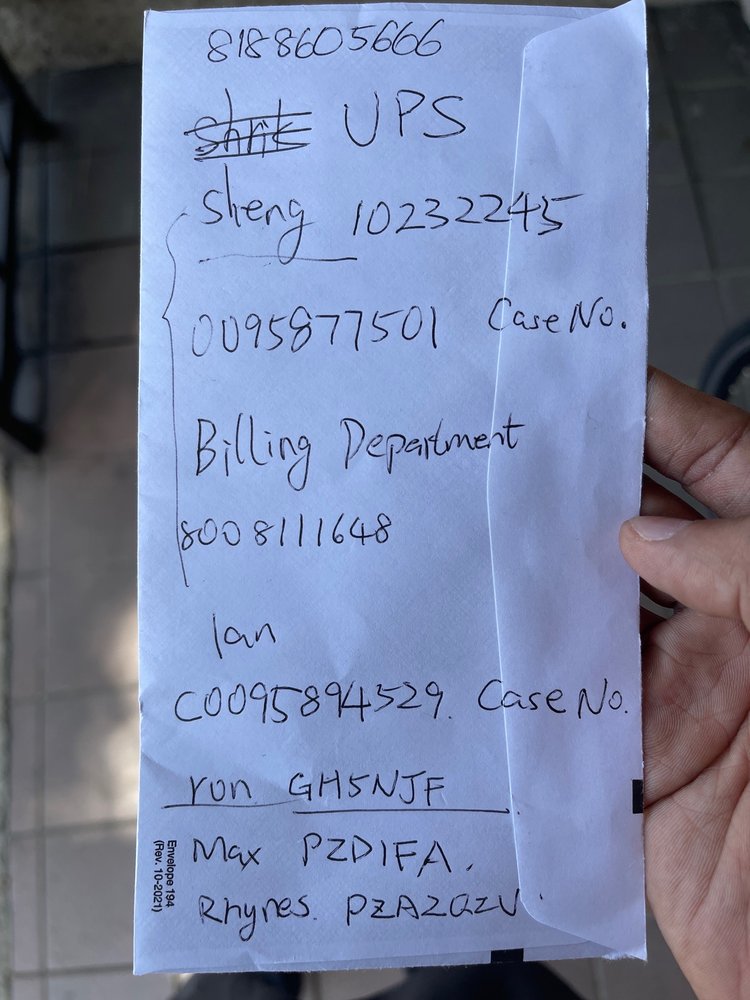 8188605666
UPS
Sheng 10232245
0095877501 Case No.
Billing Department
8008111648
Ian
C0095894529. Case No.
ron GH5NJF
Max PZD1FA.
Rhynes. PZAZQZV.
Envelope 194
(Rev. 10-2021)